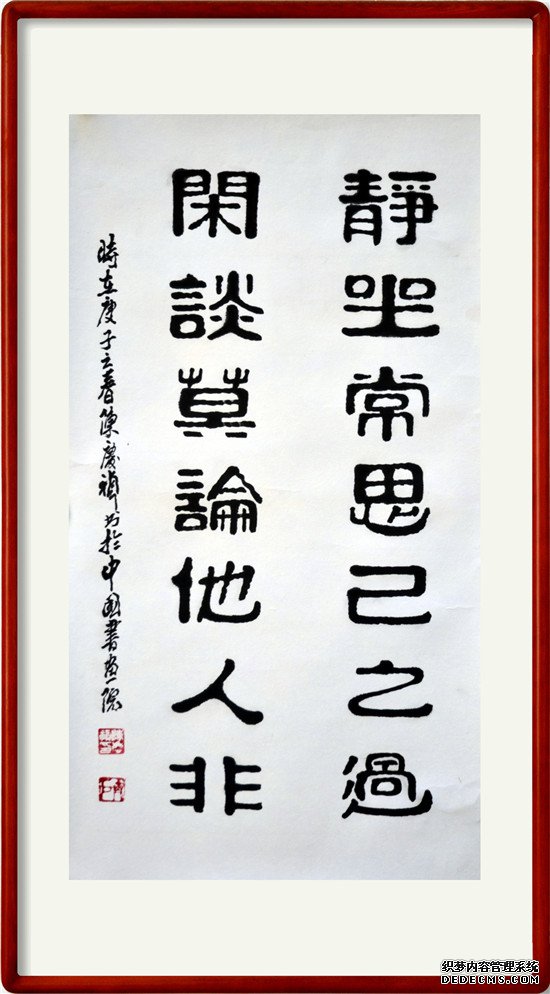 靜坐常思己之過
閑談莫論他人非
時在庚子之春陳慶禎书於中國書畫院
织梦内容管理系统
DEDECMS.COM